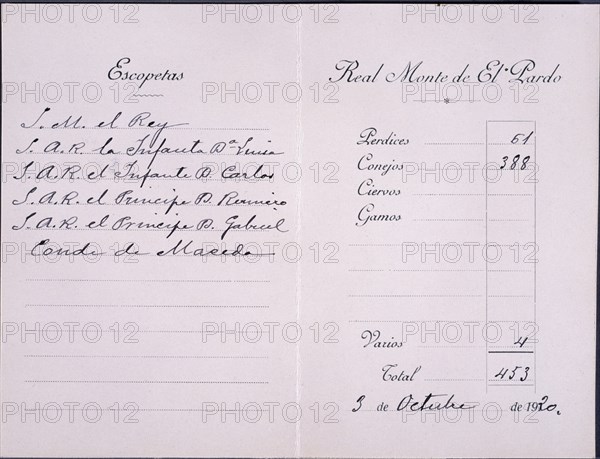 Escopetas
S. M. el Rey
S. A. R. la Infanta Dª Luisa
S. A. R. el Infante D. Carlos
S. A. R. el Principe D. Raniero
S. A. R. el Principe D. Gabriel
Conde de Maceda
Real Monte de El Pardo
Perdices 61
Conejos 388
Ciervos
Gamos
Varios 4
Total 453
3 de Octubre de 1920.